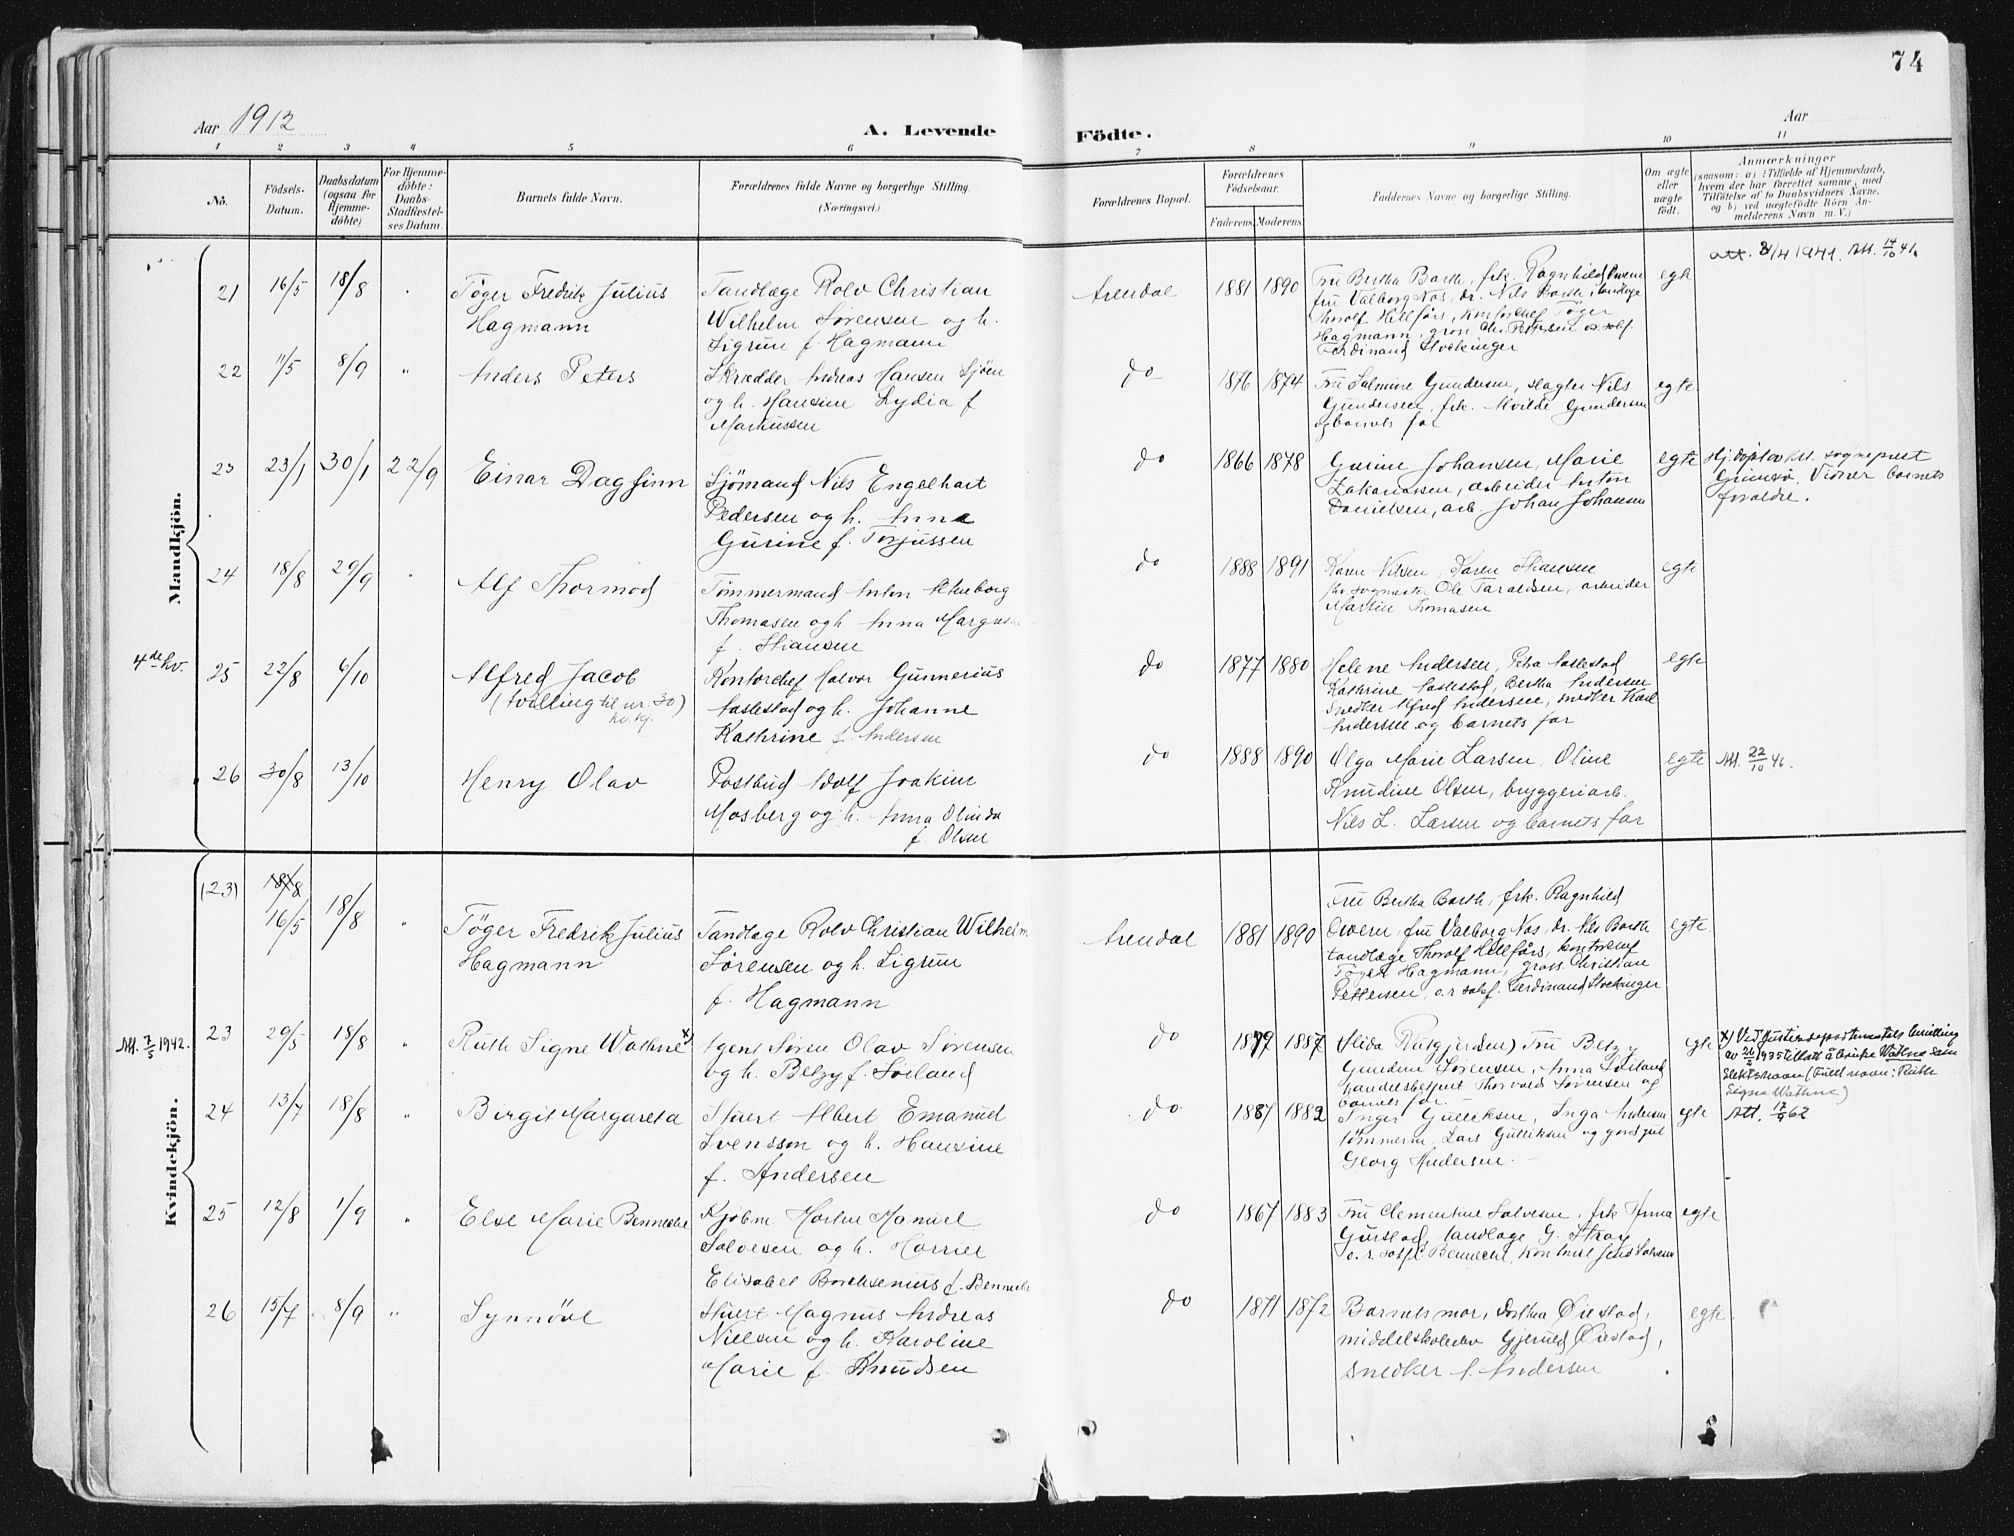 74
Aar 1912
A. Levende Födte.
Aar
1 2 3 4 5 6 7 8 9 10 11
No.
Födsels-Datum.
Daabsdatum (ogsaa for Hjemme-döbte)
For Hjemme-döbte: Daabs-Stadfæstel-ses Datum.
Barnets fulde Navn.
Forældrenes fulde Navne og borgerlige Stilling.
(Næringsvei.)
Forældrenes Bopæl.
Forældrenes Födselsaar.
Faderens. Moderens.
Faddernes Navne og borgerlige Stilling.
Om ægte eller uægte födt.
Anmærkninger
(saasom: a) Tilfælde af Hjemmedaab,
hvem der har forrettet samme, med
Tilföielse af to Daabsvidners Navne.
og b) ved uægtefödte Börn An-
melderens Navn m. V.)
Mandkjön.
4de hv.
21 16/5 18/8 Tøger Fredrik Julius
Hagmann
Tandlæge Rolv Christian
Wilhelm Sørensen og h.
Sigrun f. Hagmann
Arendal 1881 1890
Fru Bertha Barth, frk. Ragnhild
fru Valborg Nos, dr. Nils Barth, tandlæge
Thorolf Hellfårs, kontorchef Tøger
Hagmann, gross. Chr. Pettersen o.r.sakf.
Ferdinand Stockinger
egte
Att. 14/10 41.
22 11/5 8/9 " Anders Peters
Skrædder Andreas Hansen Sjøen
og h. Hansine Lydia f.
Markussen
do 1876 1874
Fru Salmine Gundersen, slagter Nils
Gundersen, frk. Gundersen
og barnets far
egte
23 23/1 30/1 22/9 Einar Dagfinn
Sjømand Nils Engelhart
Pedersen og h. Anna
Gurine f. Torjussen
do 1866 1878
Gurine Johansen, Marie
Zakariassen, arbeider Anton
Danielsen, arb. Johan Johansen
egte
Hj. døpt av sogneprest
Grimsø. Vidner barnets
foreldre.
24 18/8 29/9 Alf Thormod
Tømmermand Anton
Thomasen og h. Anna
f. Stiansen
do 1888 1891
Karen Nilsen, Karen Stiansen
Ole Taraldsen, arbeider
Martin Thomasen
egte
25 22/8 6/10 Alfred Jacob
(tvilling til nr. 30)
kv.kj.
Kontorchef Halvor Gunnerius
Aaslestad og h. Johanne
Kathrine f. Andersen
do 1877 1880
Helene Andersen, Petra Aaslestad
Kathrine Aaslestad, Bertha Andersen
Snedker Alfred Andersen, snedker Karl
Andersen og barnets far
egte
26 30/8 13/10 Henry Olav
Postbud Adolf Joakim
Mosberg og h. Anna Olinda
f. Olsen
do 1888 1890
Olga Marie Larsen, Oline
Knudine Olsen, bryggeriarb.
Nils L. Larsen og barnets far
egte
Att. 22/10 46.
Kvindekjön.
(23) 18/8
16/5 18/8 " Tøger Fredrik Julius
Hagmann
Tandlæge Rolv Christian Wilhelm
Sørensen og h. Sigrun
f. Hagmann
Arendal 1881 1890
Fru Bertha Barth, frk. Ragnhild
fru Valborg Nos, dr. Nils Barth
tandlæge Thorolf Hellfårs, kontorchef
Tøger Hagmann, gross. Christian
Pettersen, o.r.sakf. Ferdinand Stockinger
egte
Att. 7/5 1942.
23 29/5 18/8 " Ruth Signe Wathne x)
Agent Søren Olav Sørensen
og h. Betzy f. Sørland
do 1879 1887
Fru Betzy
Gundine Sørensen, Anna
handelsbetjent Thorvald Sørensen og
barnets far.
egte
x) Ved Justisdepartementets bevilling
av 26/2 1935 tillatt å bruke Wathne som
slektsnavn (Fullt navn: Ruth
Signe Wathne)
24 13/7 18/8 " Birgit Margareta
Stuert Albert Emanuel
Svensson og h. Hansine
f. Andersen
do 1887 1882
Inger Gulliksen, Inga Andersen
tømmerm. Lars Gulliksen og
Georg Andersen.
egte
Att. 17/9 62
25 12/8 1/9 " Else Marie Bennecke
Kjøbm. Morten Manuel
Salvesen og h. Harriet
Elisabet Borchsenius f. Bennecke
do 1867 1883
Fru Clementine Salvesen, frk. Anna
tandlæge G. Stray
o.r.sakf. Bennecke, Jens Salvesen
egte
26 15/7 8/9 " Synnöve
Stuert Magnus Andreas
Nielsen og h. Karoline
Marie f. Knudsen
do 1871 1872
Barnets mor, Dorthea Øiestad,
middelskoleelev Gjerulf Øiestad,
snedker A. Andersen
egte.